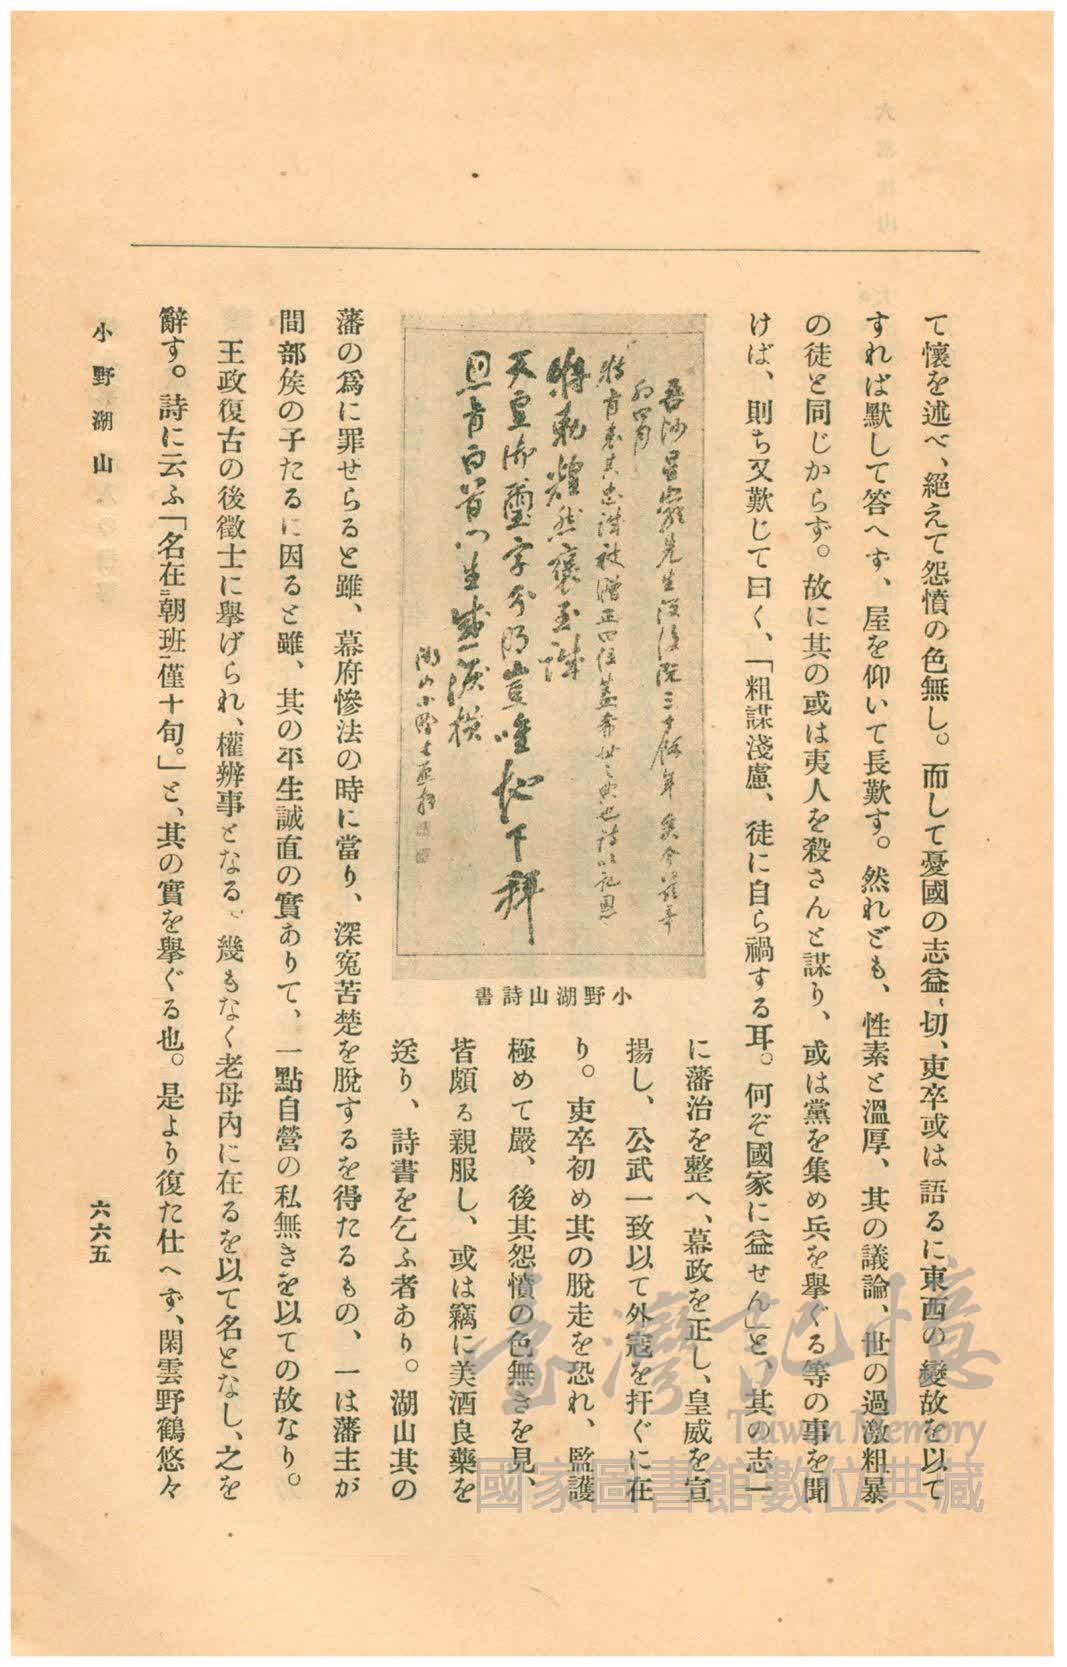 て懷を述べ、絕えて怨憤の色無し。而して憂國の志益〻切、吏卒或は語るに東西の變故を以て
すれば默して答へず、屋を仰いて長歎す。然れども、性素と溫厚、其の議論、世の過激粗暴
の徒と同じからず。故に其の或は夷人を殺さんと謀り、或は黨を集め兵を擧ぐる等の事を聞
けば、則ち又歎じて曰く、「粗謀淺慮、徒に自ら禍する耳。何ぞ國家に益せん」と、其の志一
に藩治を整へ、幕政を正し、皇威を宣
揚し、公武一致以て外寇を扞ぐに在
り。吏卒初め其の脫走を恐れ、監護
極めて嚴、後其怨憤の色無きを見、
皆頗る親服し、或は竊に美酒良藥を
送り、詩書を乞ふ者あり。湖山其の
先生沒後既三十餘年
特旨
將勅煌然褒至誠
天皇御璽字分明豈唯地下拜
恩肯白首門生感淚橫
湖山小野
小野湖山詩書
藩の爲に罪せらると雖、幕府慘法の時に當り、深寃苦楚を脫するを得たるもの、一は藩主が
間部矦の子たるに因ると雖、其の平生誠直の實ありて、一點自營の私無きを以ての故なり。
王政復古の後徵士に擧げられ、權辨事となる。幾もなく老母內に在るを以て名となし、之を
辭す。詩に云ふ「名在朝班僅十旬。」と、其の實を擧ぐる也。是より復た仕へず、閑雲野鶴悠々
小野湖山
六六五
臺灣記憶
Taiwan Memory
國家圖書館數位典藏